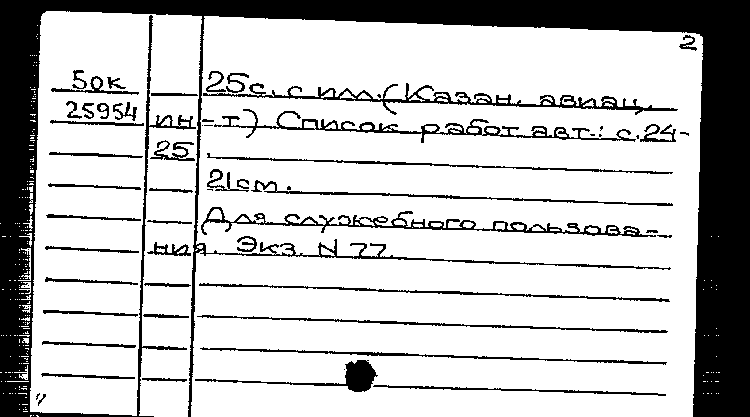 2
50к 25с. с ил.(Казан. авиац.
25954 ин-т) Список работ авт.: с.24-
25.
21см.
Для служебного пользова-
ния. Экз. N 77.